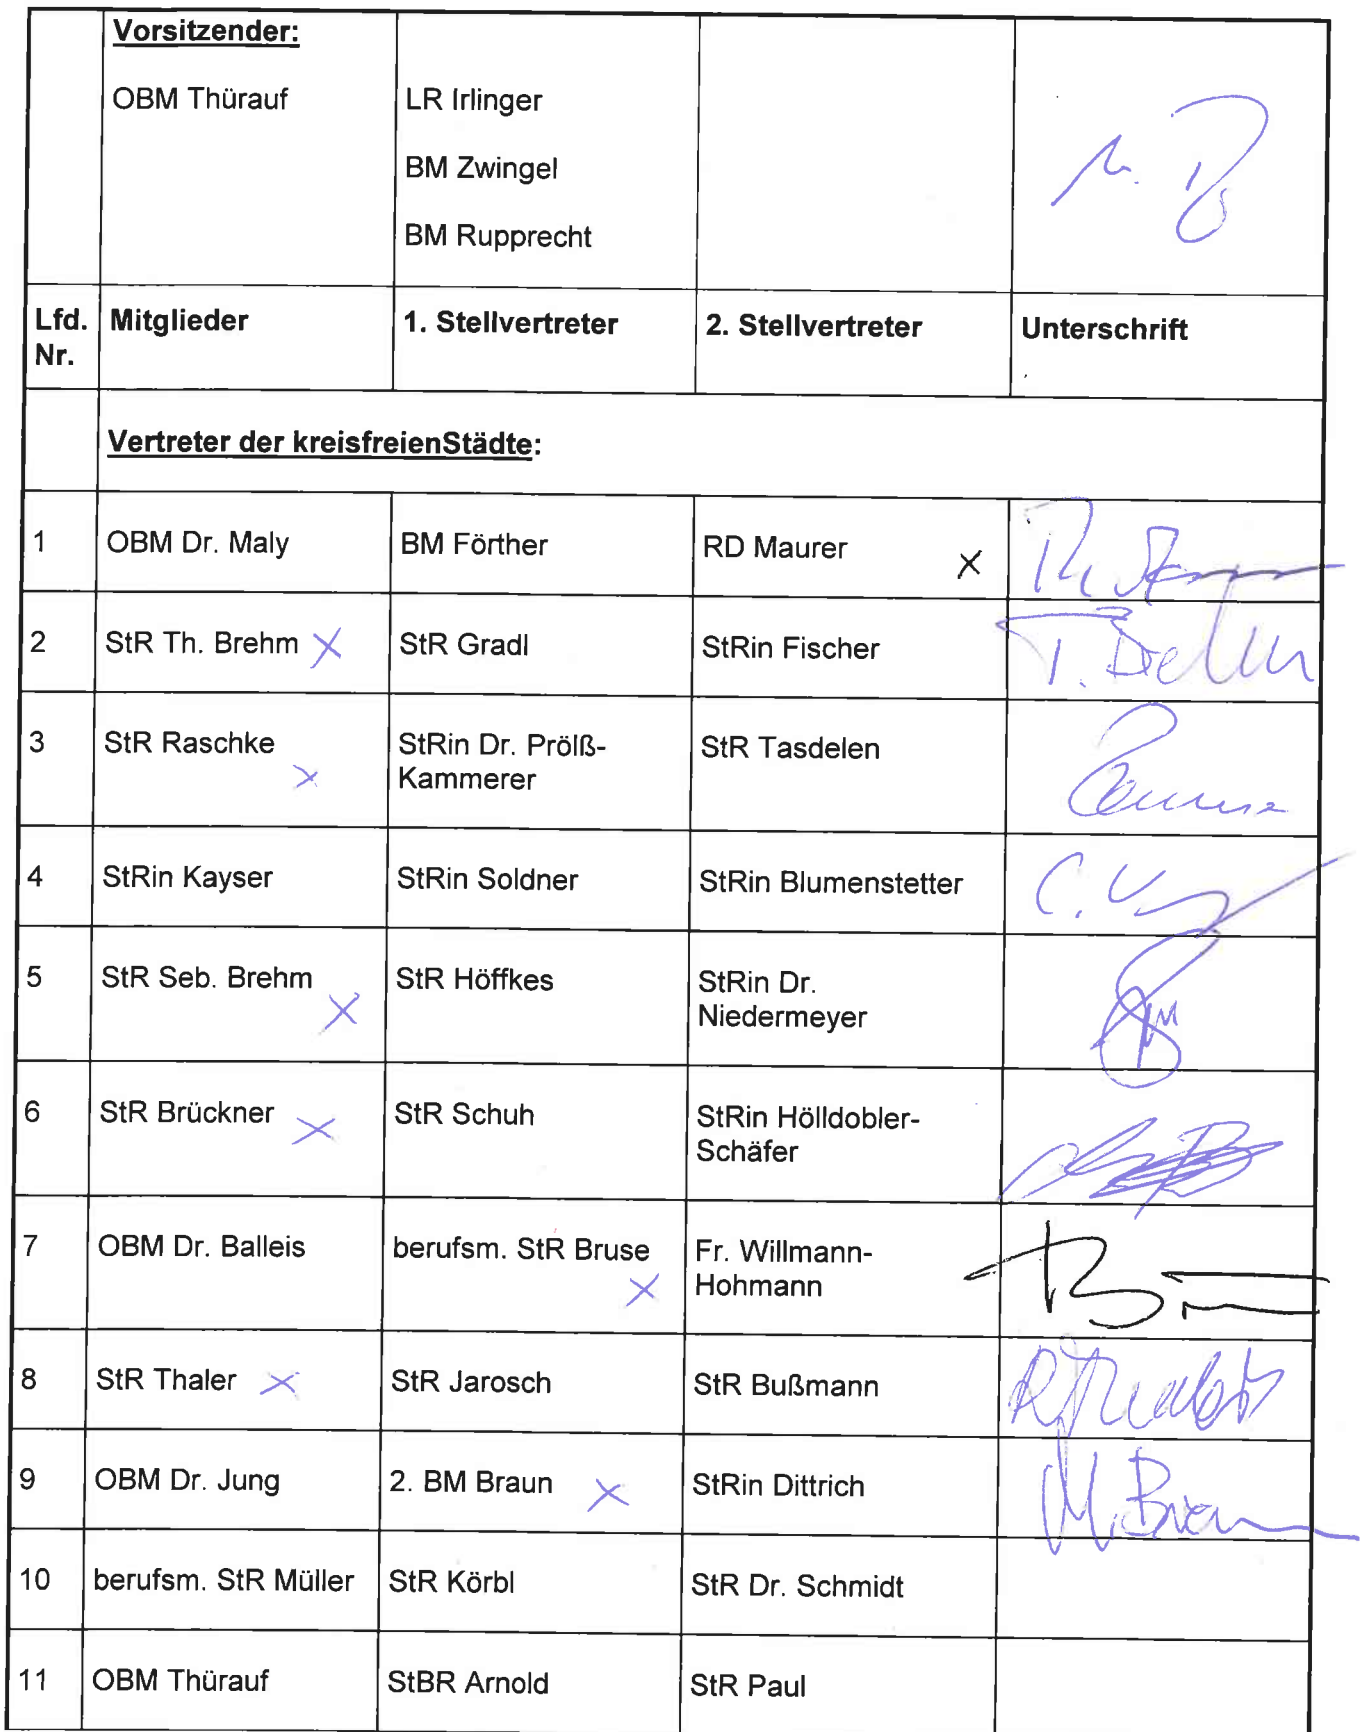 Vorsitzender:
OBM Thürauf LR Irlinger
BM Zwingel
BM Rupprecht
Lfd. Nr. Mitglieder 1. Stellvertreter 2. Stellvertreter Unterschrift
Vertreter der kreisfreienStädte:
1 OBM Dr. Maly BM Förther RD Maurer X
2 StR Th. Brehm X StR Gradl StRin Fischer
3 StR Raschke X StRin Dr. Prölß-
Kammerer StR Tasdelen
4 StRin Kayser StRin Soldner StRin Blumenstetter
5 StR Seb. Brehm X StR Höffkes StRin Dr.
Niedermeyer
6 StR Brückner X StR Schuh StRin Hölldobler-
Schäfer
7 OBM Dr. Balleis berufsm. StR Bruse X Fr. Willmann-
Hohmann
8 StR Thaler X StR Jarosch StR Bußmann
9 OBM Dr. Jung 2. BM Braun X StRin Dittrich M. Braun
10 berufsm. StR Müller StR Körbl StR Dr. Schmidt
11 OBM Thürauf StBR Arnold StR Paul